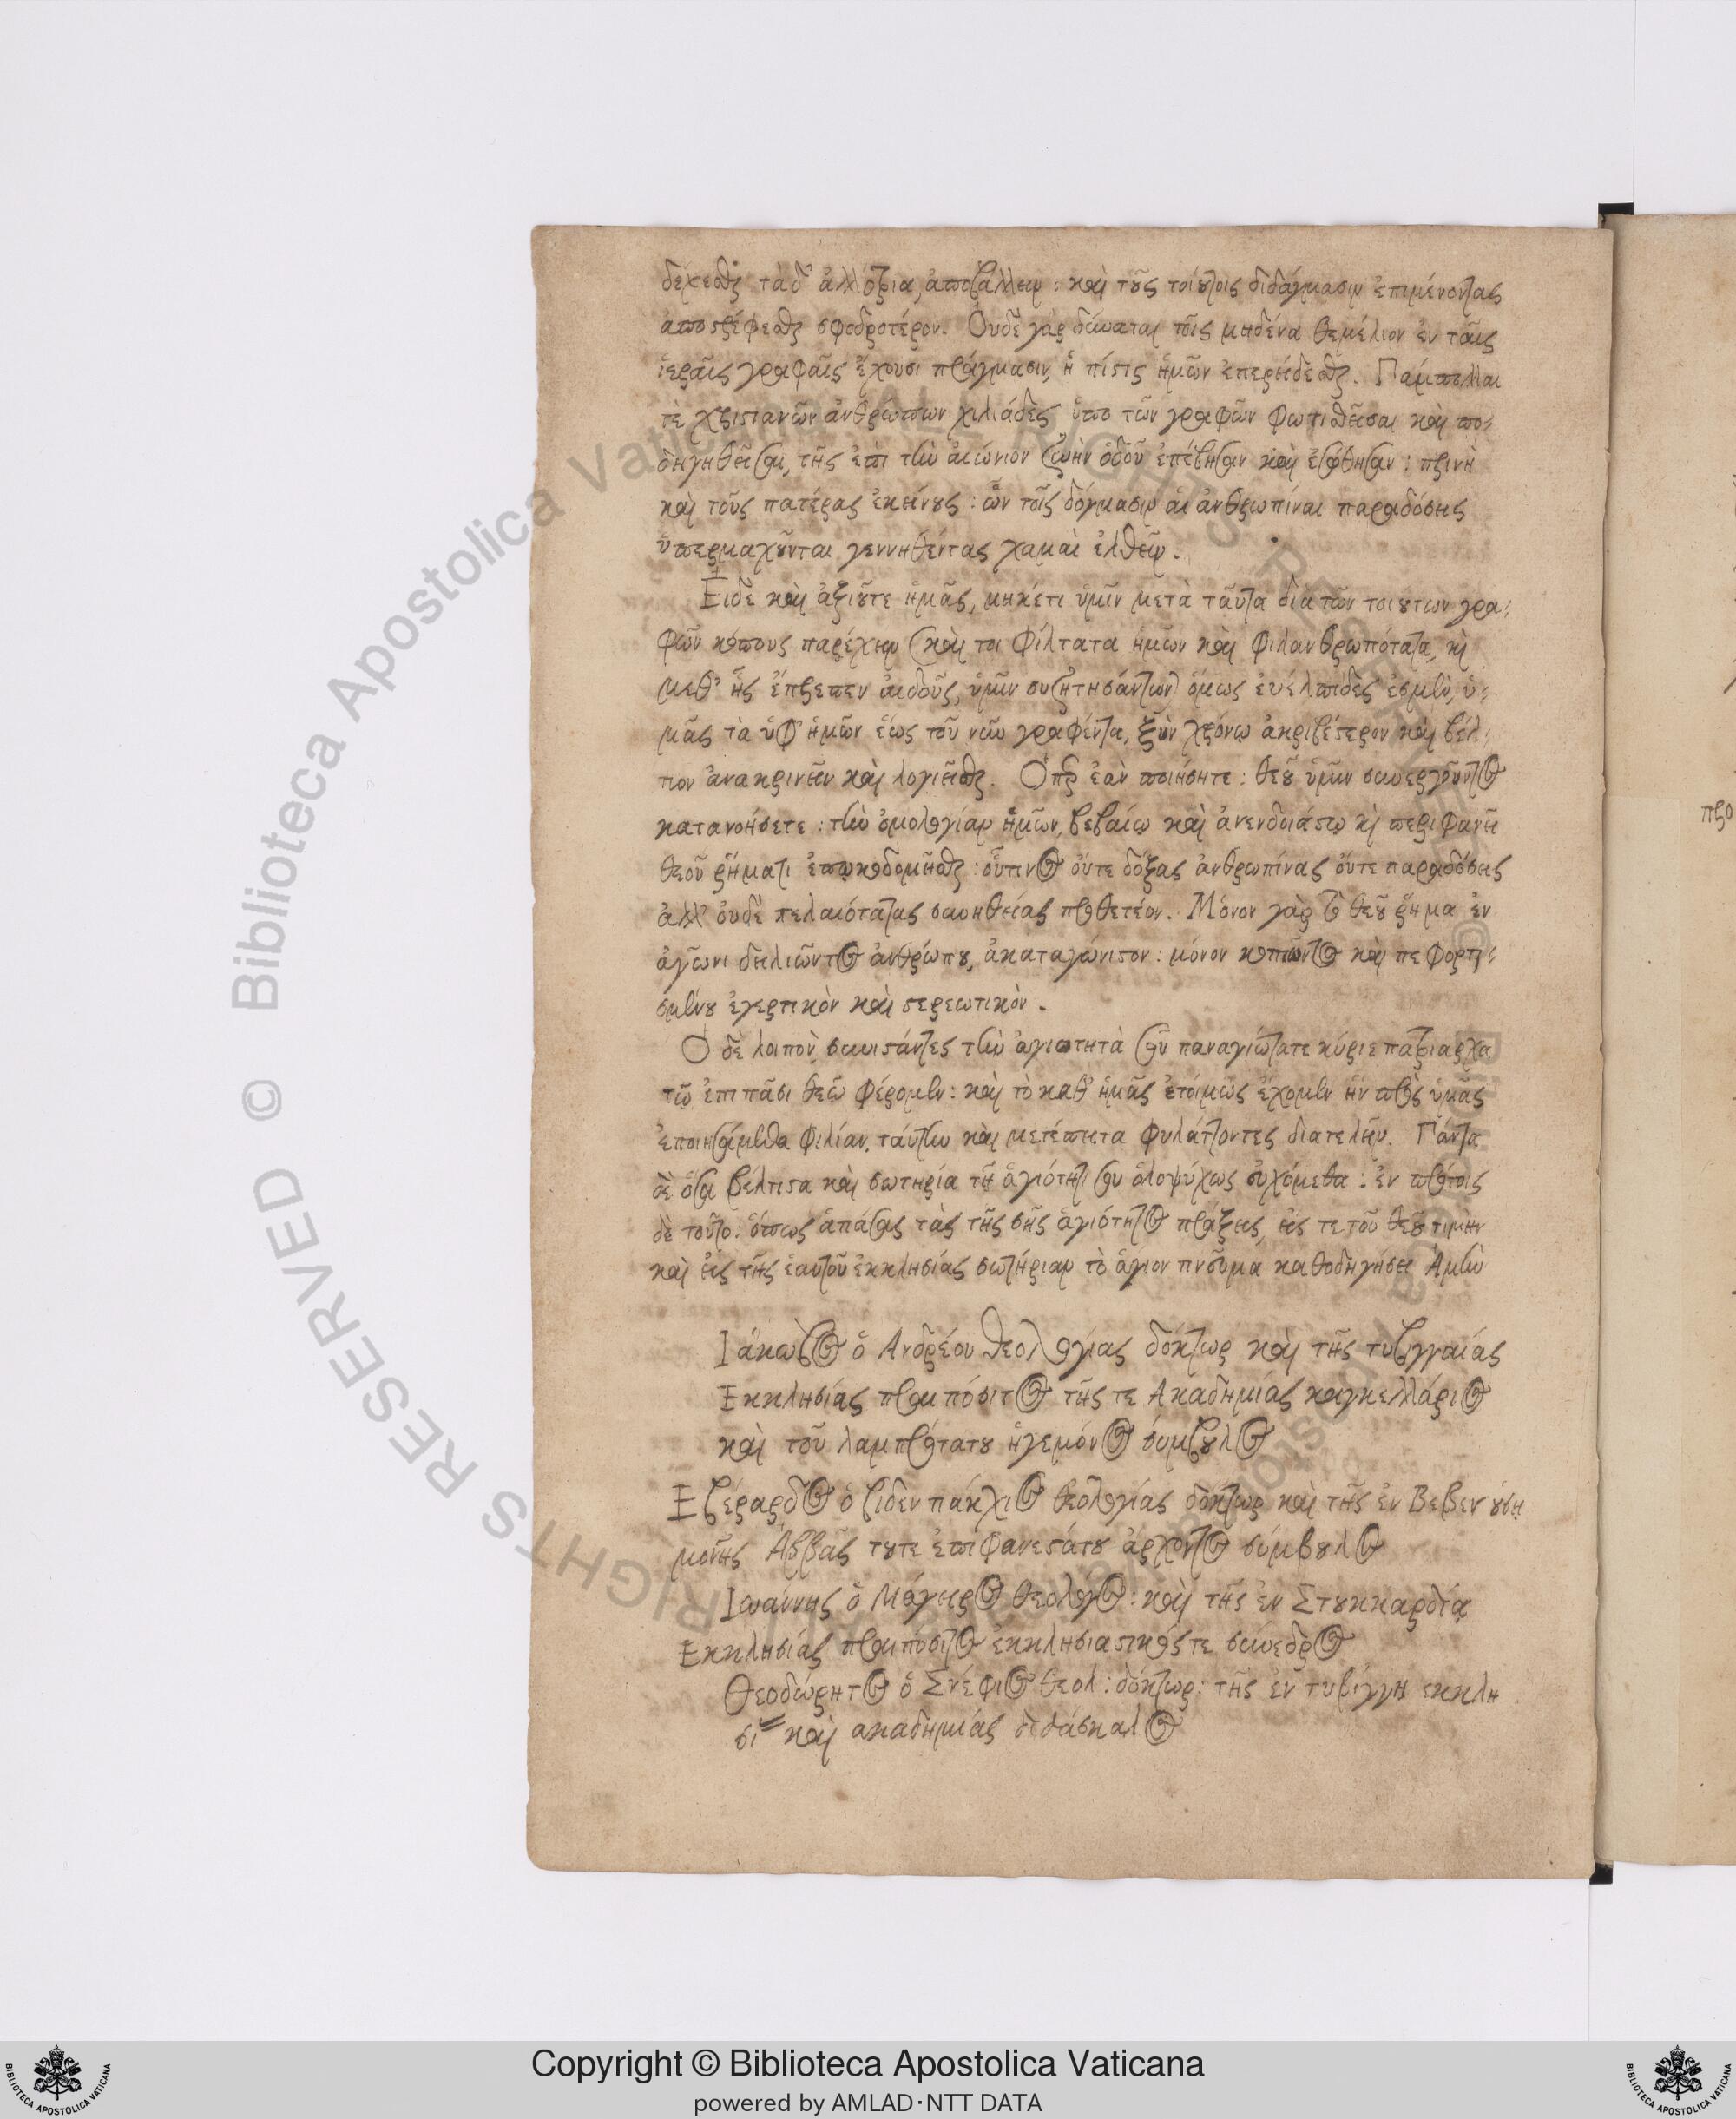 δέχεσθαι τὰ δ' ἀλλότρια, ἀποβάλλειν : καὶ τοὺς τοιούτοις διδάγμασιν ἐπιμένοντας
ἀποστρέφεσθαι σφοδρότερον. Οὐδὲ γὰρ δύναται τοῖς μηδένα θεμέλιον ἐν ταῖς
ἱεραῖς γραφαῖς ἔχουσι πράγμασιν, ἡ πίστις ἡμῶν ἐπερείδεσθαι. Πάμπολλαι
τὲ χριστιανῶν ἀνθρώπων χιλιάδες ὑπὸ τῶν γραφῶν φωτισθεῖσαι καὶ πο-
δηγηθεῖσαι, τῆς ἐπὶ τὴν αἰώνιον ζωὴν ὁδοῦ ἐπέβησαν καὶ ἐσώθησαν : πρινὴ
καὶ τοὺς πατέρας ἐκείνους : ὧν τοῖς δόγμασιν αἱ ἀνθρωπίναι παραδόσεις
ὑπερμαχοῦνται γεννηθέντας χαμαὶ ἐλθεῖν.
Εἰδὲ καὶ ἀξιοῦτε ἡμᾶς, μηκέτι ὑμῖν μετὰ ταῦτα διὰ τῶν τοιούτων γρα-
φῶν κόπους παρέχειν (καὶ τοι φίλτατα ἡμῶν καὶ φιλανθρωπότατα, καὶ
μεθ' ἧς ἔπρεπεν αἰδοῦς, ὑμῖν συζητησάντων) ὅμως ἐυέλπιδες ἐσμὲν, ὑ-
μᾶς τὰ ὑφ' ἡμῶν ἕως τοῦ νῦν γραφέντα, ξὺν χρόνῳ ἀκριβέστερον καὶ βέλ-
τιον ἀνακρινεῖν καὶ λογιεῖσθαι. Ὅπερ ἐὰν ποιήσητε : θεοῦ ὑμῖν συνεργοῦντος
κατανοήσετε : τὴν ὁμολογίαν ἡμῶν, βεβαίῳ καὶ ἀνενδοιάστῳ καὶ περιφανεῖ
θεοῦ ῥήματι ἐπῳκοδομῆσθαι : οὗτινος οὔτε δόξας ἀνθρωπίνας οὔτε παραδόσεις
ἀλλ' οὐδὲ πελαιότατας συνηθείας προθετέον. Μόνον γὰρ τὸ θεοῦ ῥῆμα ἐν
ἀγῶνι δειλιῶντος ἀνθρώπου, ἀκαταγώνιστον : μόνον κοπιῶντος καὶ πεφορτι-
σμένου ἐγερτικὸν καὶ στερεωτικὸν.
Ὁ δὲ λοιπὸν συνιστάντες τὴν ἁγιοτητὰ σοῦ παναγιώτατε κύριε πατριαρχα
τῷ ἐπιπᾶσι θεῷ φέρομεν : καὶ τὸ καθ' ἡμᾶς ἑτοίμως ἔχομεν ἣν πρὸς ὑμᾶς
ἐποιησάμεθα φιλίαν, ταύτην καὶ μετέπειτα φυλάττοντες διατελεῖν. Πάντα
δὲ ὅσα βέλτιστα καὶ σωτηρία τῇ ἁγιότητί σου ὁλοψύχως εὐχόμεθα : ἐν πρώτοις
δὲ τοῦτο : ὅπως ἁπάσας τὰς τῆς σῆς ἁγιότητος πράξεις, εἰς τε τοῦ θεοῦ τιμὴν
καὶ εἰς τῆς ἑαυτοῦ ἐκκλησίας σωτήριαν τὸ ἅγιον πνεῦμα καθοδηγήσει Ἀμὴν
Ιάκωβος ὁ Ανδρέου θεολογίας δόκτωρ καὶ τῆς τυβιγγαίας
Εκκλησίας πραιπόσιτος τῆς τε Ακαδημίας καγκελλάριος
καὶ τοῦ λαμπροτάτου ἡγεμόνος σύμβουλος
Εβέραρδος ὁ βιδενπάκχιος θεολογίας δόκτωρ καὶ τῆς ἐν Βεβενούση
μονῆς Ἀββᾶς τουτε ἐπιφανεστάτου ἄρχοντος σύμβουλος
Ιωάννης ὁ Μάγειρος θεολόγος : καὶ τῆς ἐν Στουκκαρδίᾳ
Εκκλησίας πραιποσιτος ἐκκλησιαστικόςτε σύνεδρος
Θεοδώρητος ὁ Σνέφιος θεολ : δόκτωρ : τῆς ἐν τυβίγγῃ εκκλη
σί= καὶ ακαδημίας διδάσκαλος
Copyright © Biblioteca Apostolica Vaticana
powered by AMLAD·NTT DATA